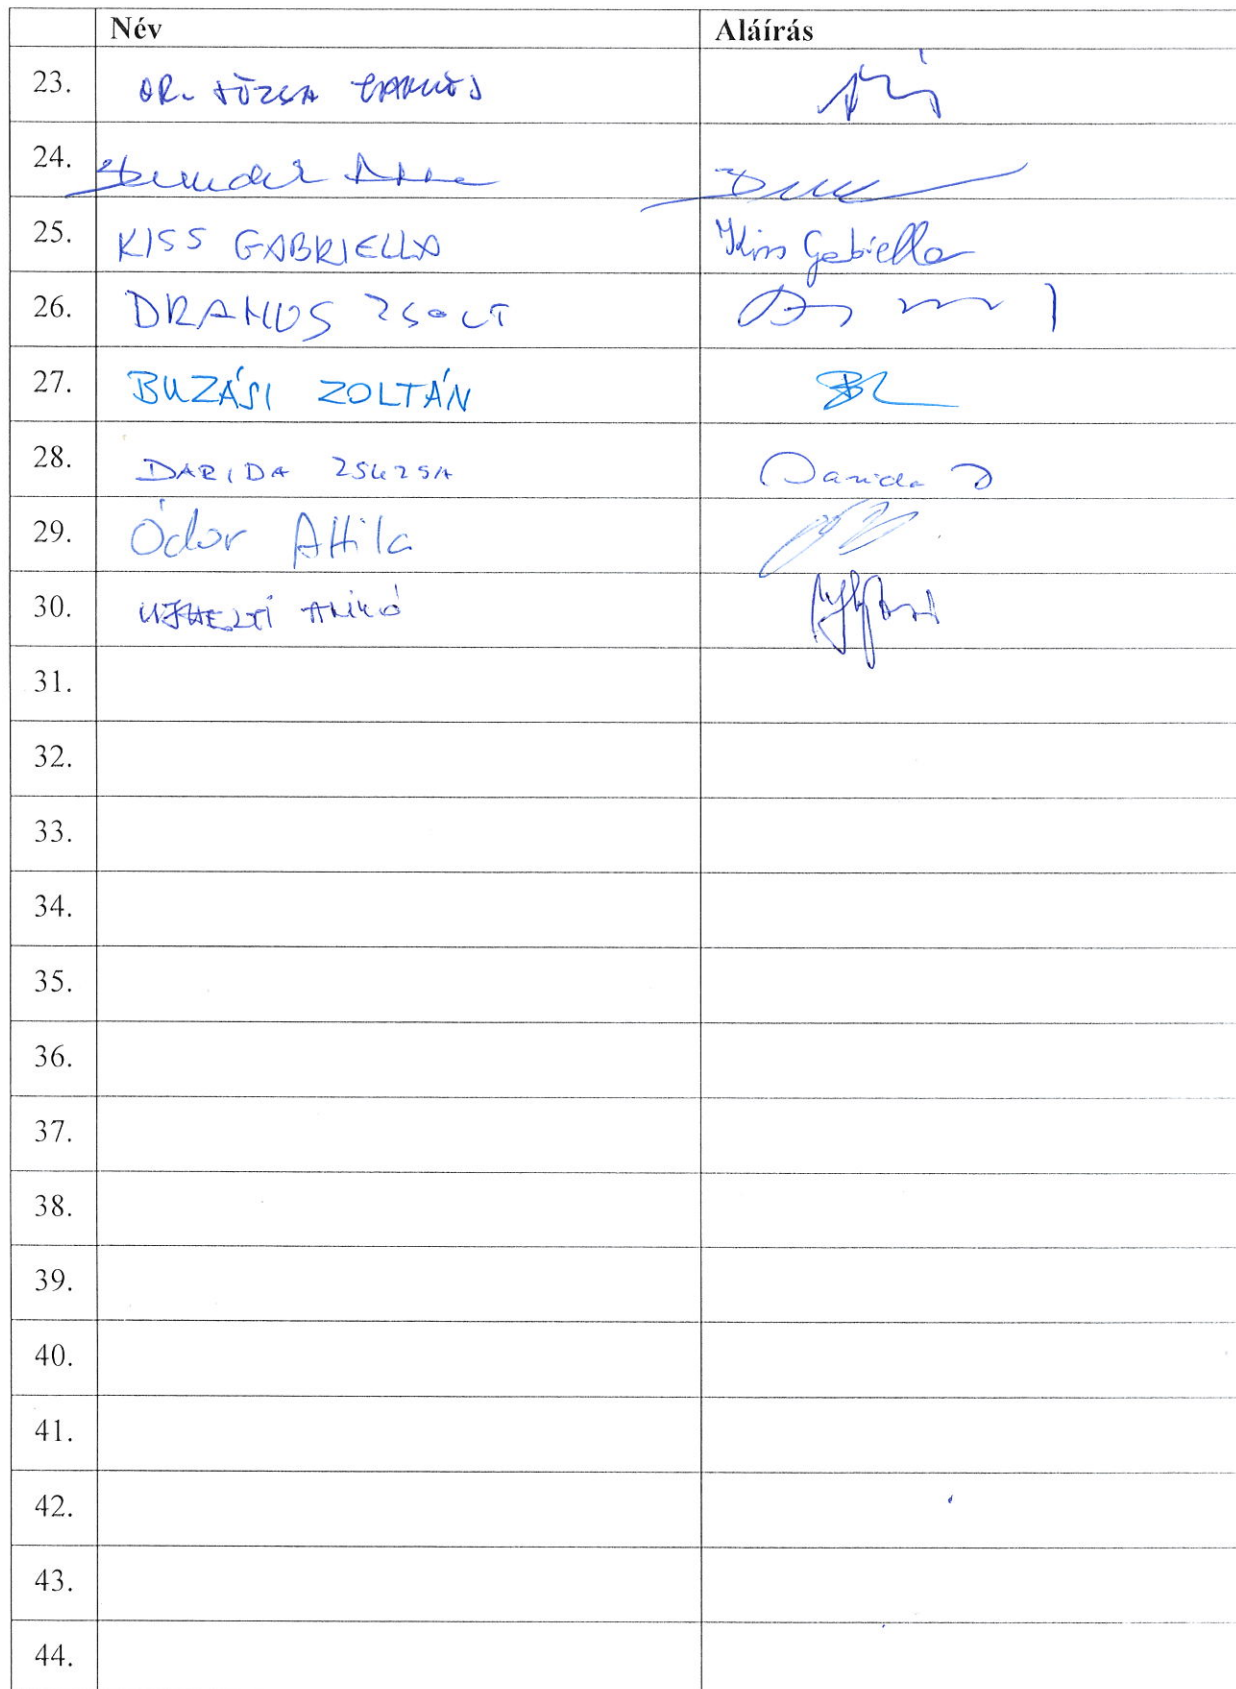 Név Aláírás
23. DR. JÓZSA
24.
25. KISS GABRIELLA Kiss Gabriella
26. DRAHOS ZSOLT
27. BUZÁSI ZOLTÁN BZ
28. DARIDA ZSUZSA Darida
29. Ódor Attila
30. UJHELYI ANIKÓ
31.
32.
33.
34.
35.
36.
37.
38.
39.
40.
41.
42.
43.
44.